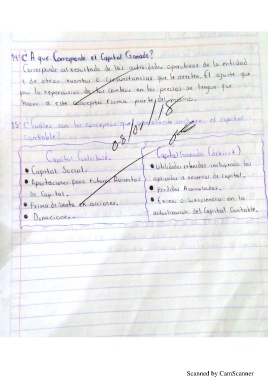 14: ¿A que Corresponde el Capital Ganado?
Corresponde al resultado de las actividades operativas de la entidad
y de otros eventos o circunstancias que le afecten. El ajuste que
por la repercusión de los cambios en los precios se tenga que
hacer a este concepto forma parte del mismo.
15: ¿Cuáles son los conceptos que el capital
contable?
Capital Contribuido
• Capital Social.
• Aportaciones para futuros Aumentos
de Capital.
• Prima de Venta en acciones.
• Donaciones.
Capital Ganado (déficit)
• Utilidades retenidas incluyendo las
aplicadas a reservas de capital.
• Pérdidas Acumuladas.
• Exceso o insuficiencia en la
actualización del Capital Contable.
08/01/18
Scanned by CamScanner